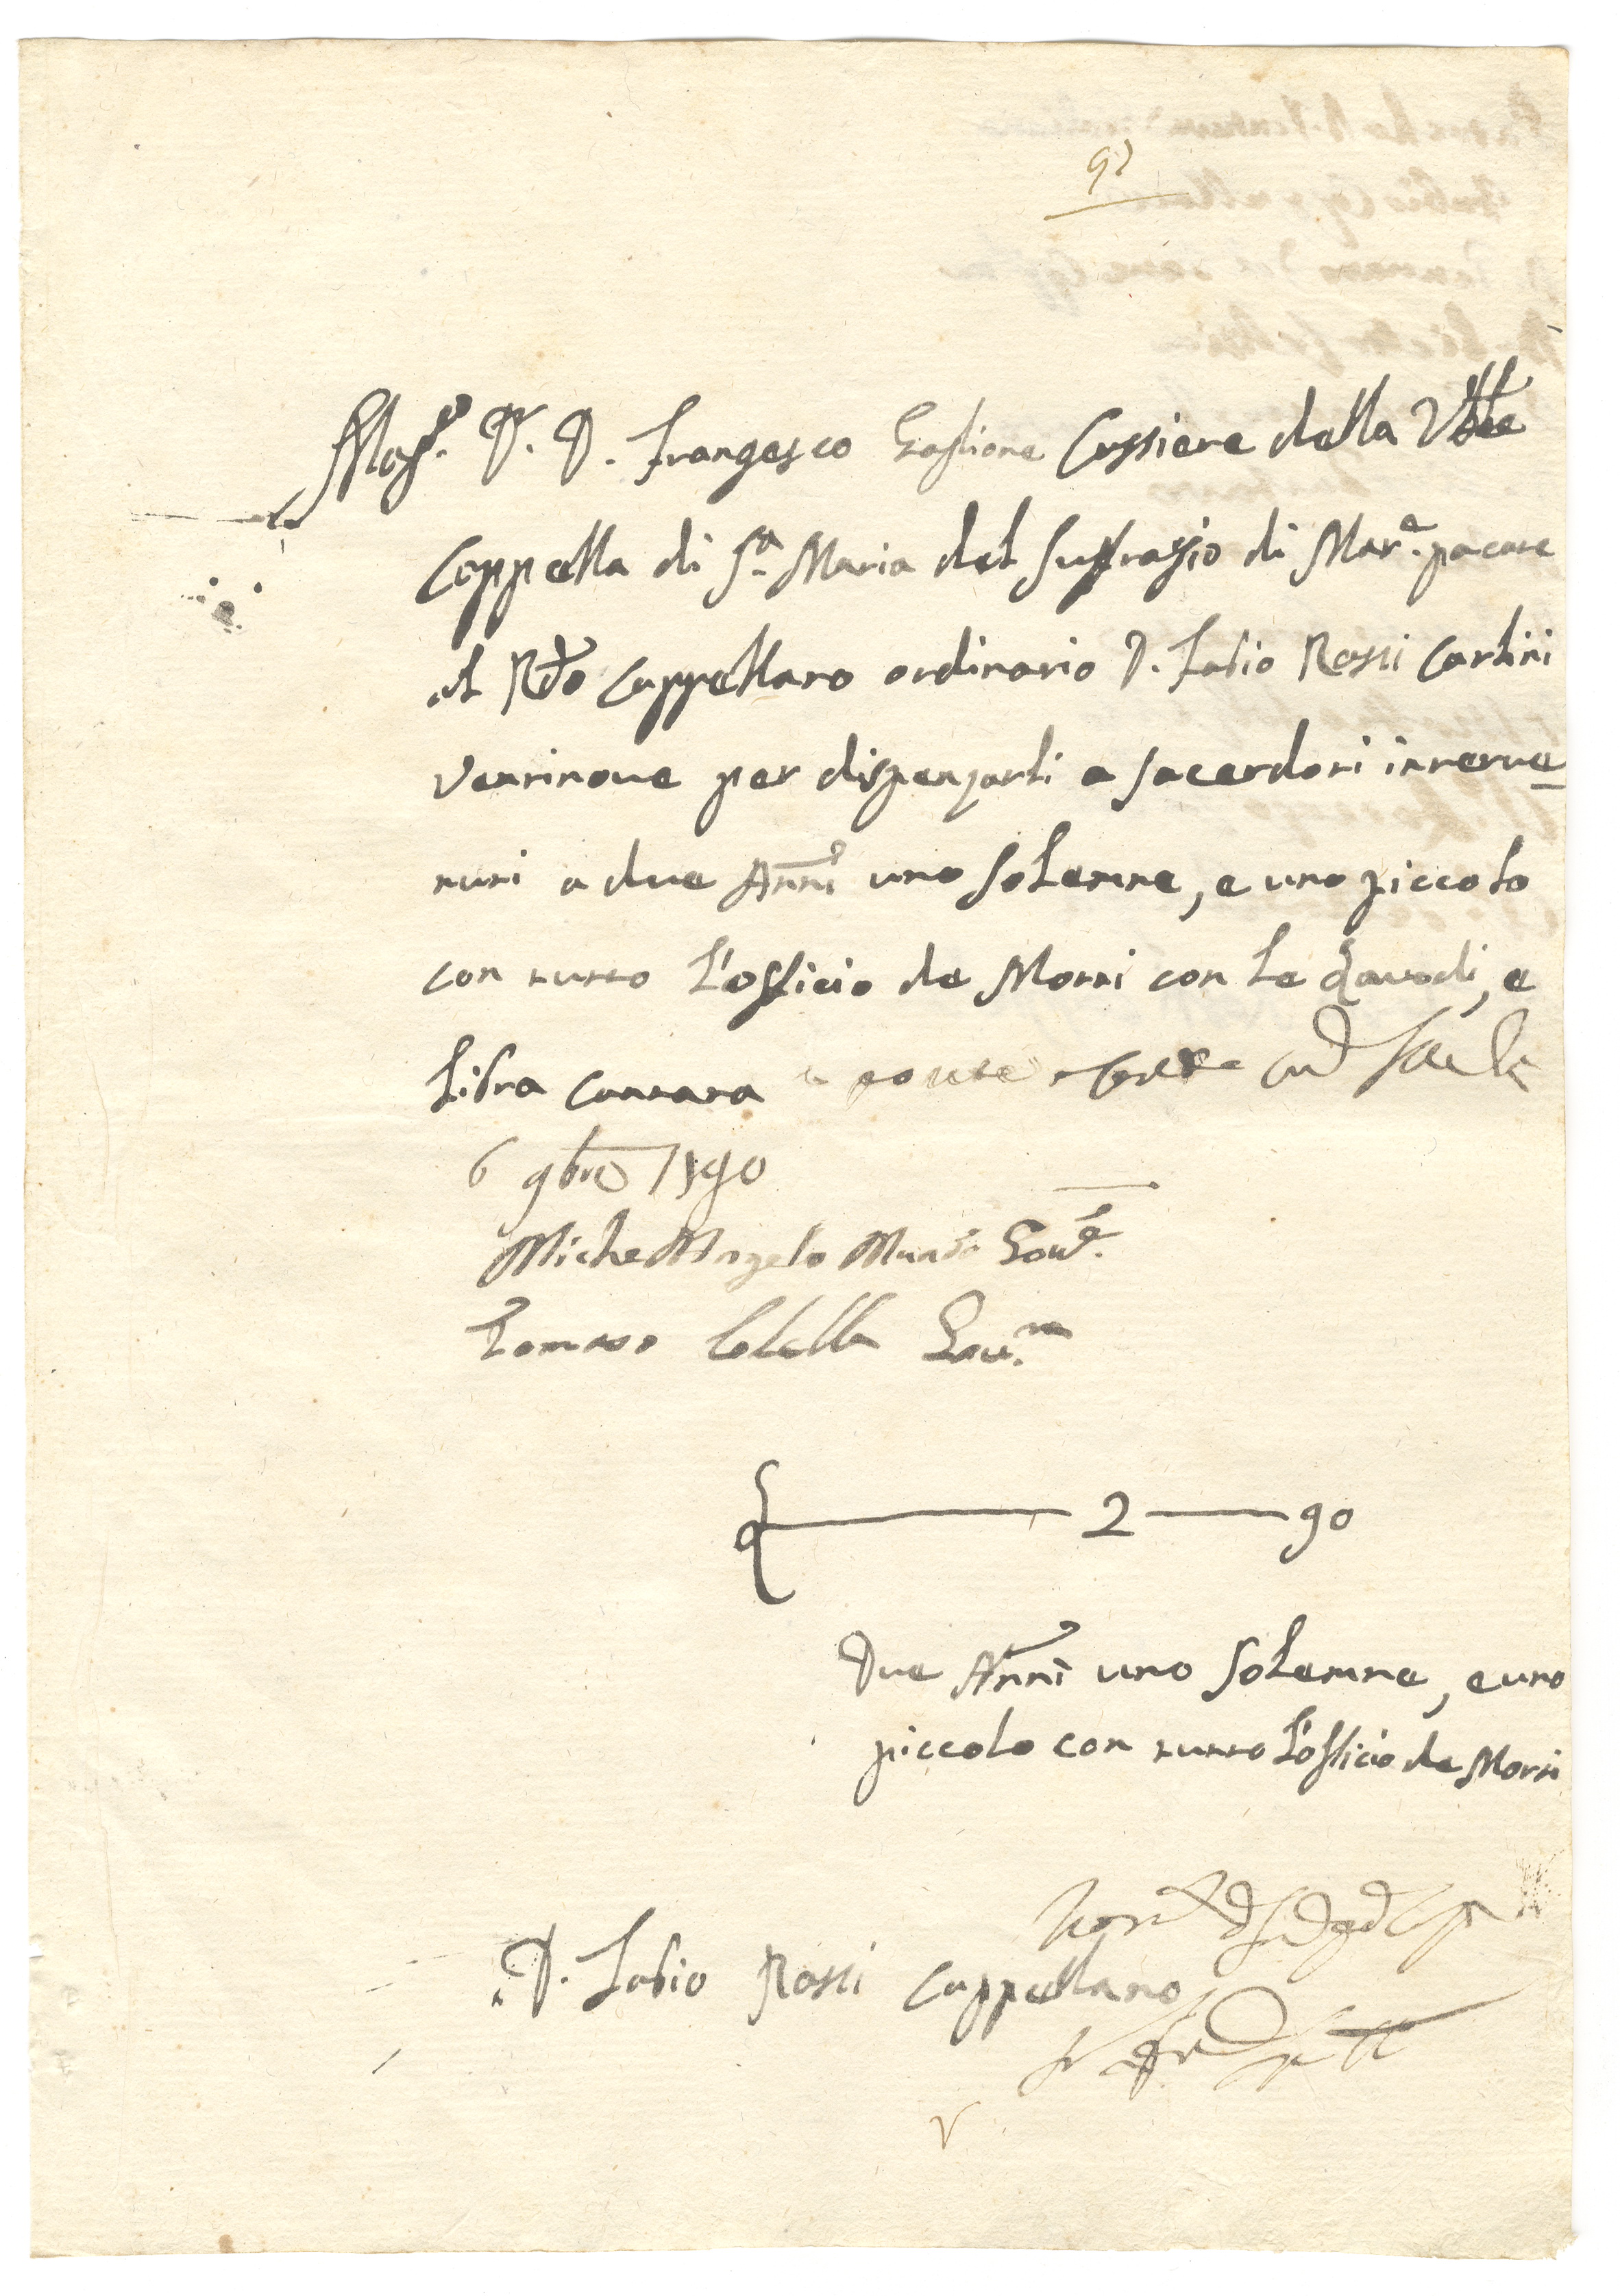 Mag.co D. D. Frangesco Gastione Cassiere della Vble
Cappella di S.a Maria del Suffragio di Mar.a pacate
al Rdo Cappellano ordinario D. Fabio Rossi Carlini
ventinove per dispenzarli a sacerdoti interve
nuti a due Anni uno solenne, e uno piccolo
con tutto l'officio de Morti con le Laudi, e
Libra cantata
6 9bre 1790
Michel Angelo Gov.e
Tomaso Colella Gov.re
2 — 90
Due Anni uno solenne, e uno
piccolo con tutto l'officio de Morti
D. Fabio Rossi Cappellano